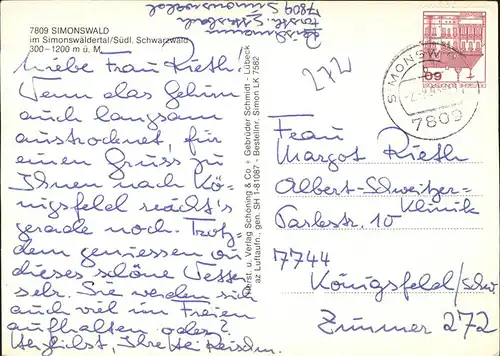 7809 SIMONSWALD
im Simonswäldertal/Südl. Schwarzwald
300–1200 m ü. M.
7809 Simonswald
Liebe Frau Rieth!
Wenn das Gehirn
auch langsam
austrocknet, für
einen Gruss zu
Ihnen nach Kö-
nigsfeld reicht's
gerade noch. Trotz-
dem geniessen wir
dieses schöne Wetter
sehr. Sie werden sich
auch viel im Freien
aufhalten oder?
Herzlichst, Ihre
Herst. u. Verlag Schöning & Co + Gebrüder Schmidt - Lübeck
az Luftaufn., gen. SH 1-81087 - Bestellnr. Simon LK 7582
272
SIMONSW
7809
60
Frau
Margot Rieth
Albert-Schweitzer-
Klinik
Parkstr. 10
7744
Königsfeld/Schw
Zimmer 272